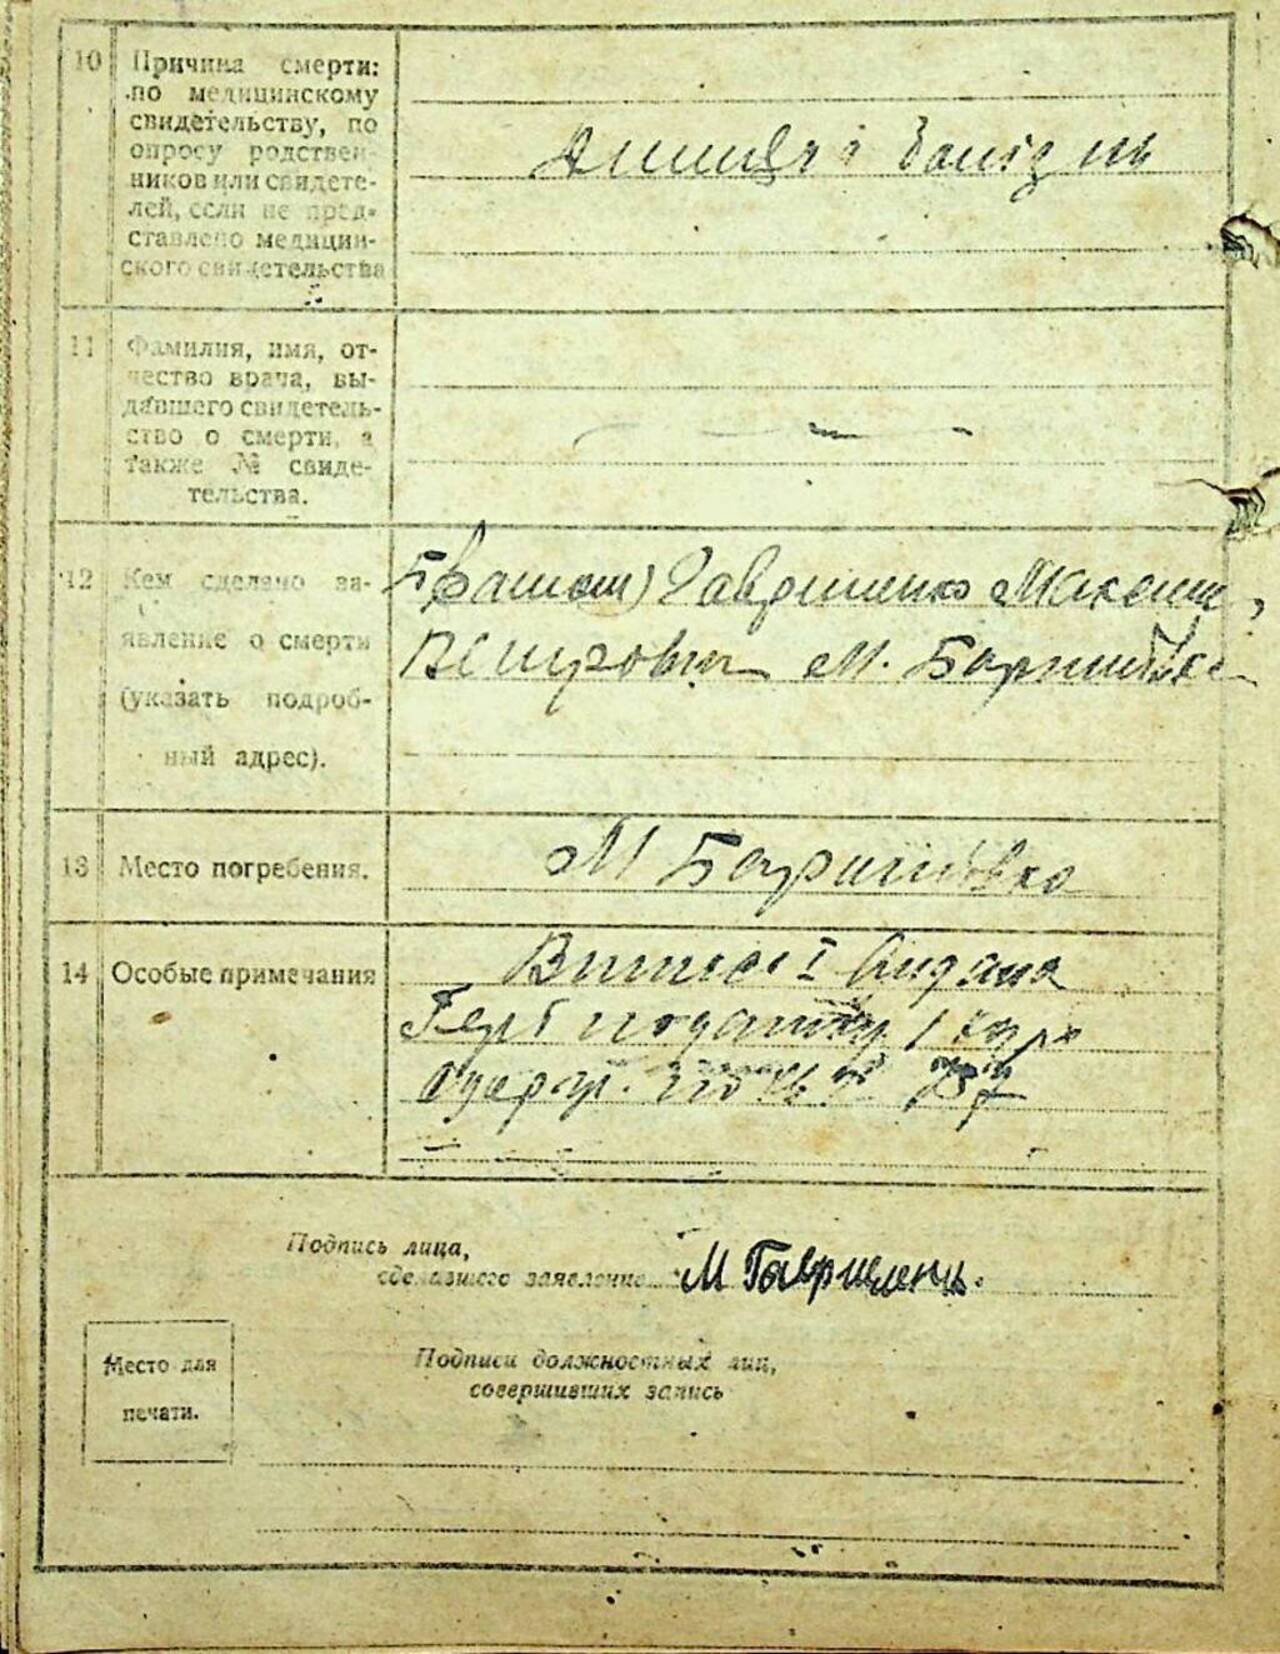 10 Причина смерти:
по медицинскому
свидетельству, по
опросу родствен-
ников или свидете-
лей, если не пред-
ставлено медицин-
ского свидетельства
11 Фамилия, имя, от-
чество врача, вы-
давшего свидетель-
ство о смерти, а
также № свиде-
тельства.
12 Кем сделано за-
явление о смерти
(указать подроб-
ный адрес).
Гавриленко Максим,
Петрович М.
13 Место погребения.
М Баришівка
14 Особые примечания
видана
Герб
Подпись лица,
сделавшего заявление М Гавриленко.
Место для
печати.
Подписи должностных лиц,
совершивших запись